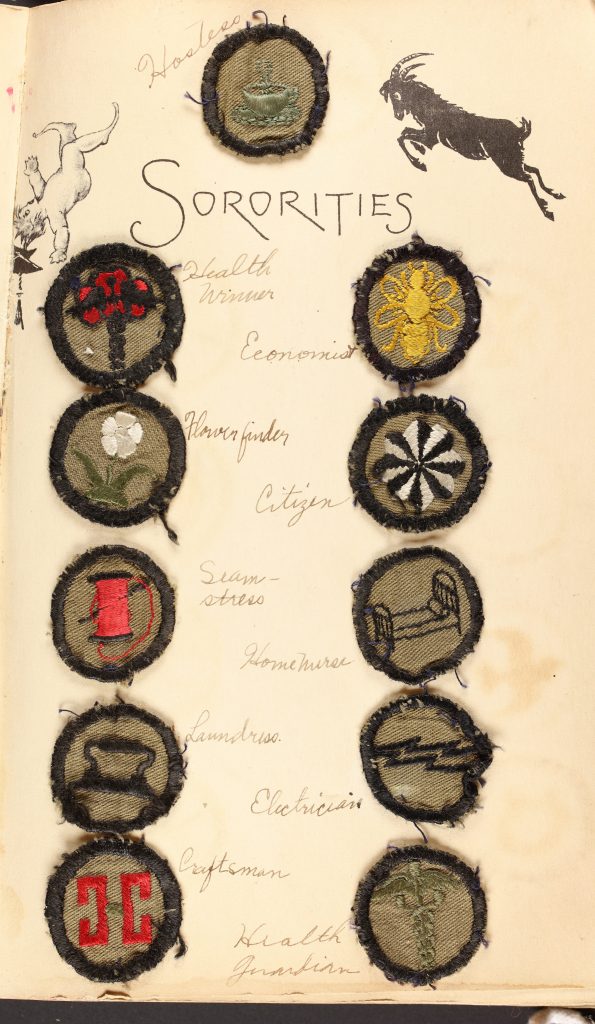 Hostess
SORORITIES
Health
Winner
Economist
Flower finder
Citizen
Seam-
stress
Homenurse
Laundress.
Electrician
Craftsman
Health
Guardian